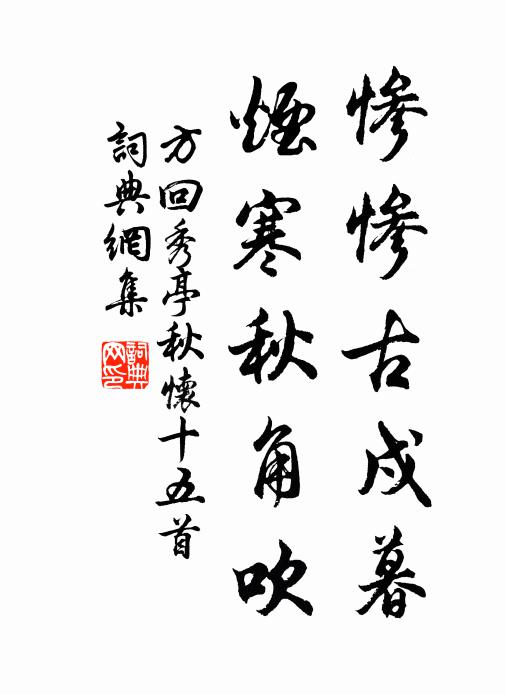 惨惨古戍暮
煙寒秋角吹
方回秀亭秋懷十五首
詞典網集
詞典網印